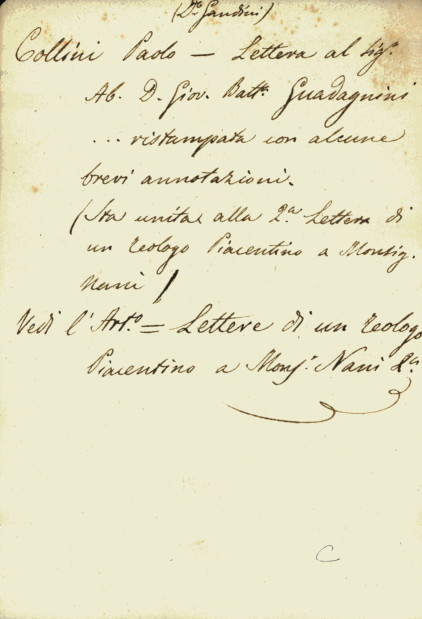 (Dn. Gandini)
Collini Paolo — Lettera al Sigr.
Ab. D. Giov. Batta. Guadagnini
... ristampata con alcune
brevi annotazioni.
(Sta unita alla 2.a Lettera di
un Teologo Piacentino a Monsig.
Nani)
Vedi l'Arto. = Lettere di un Teologo
Piacentino a Monsr. Nani 2.a
C